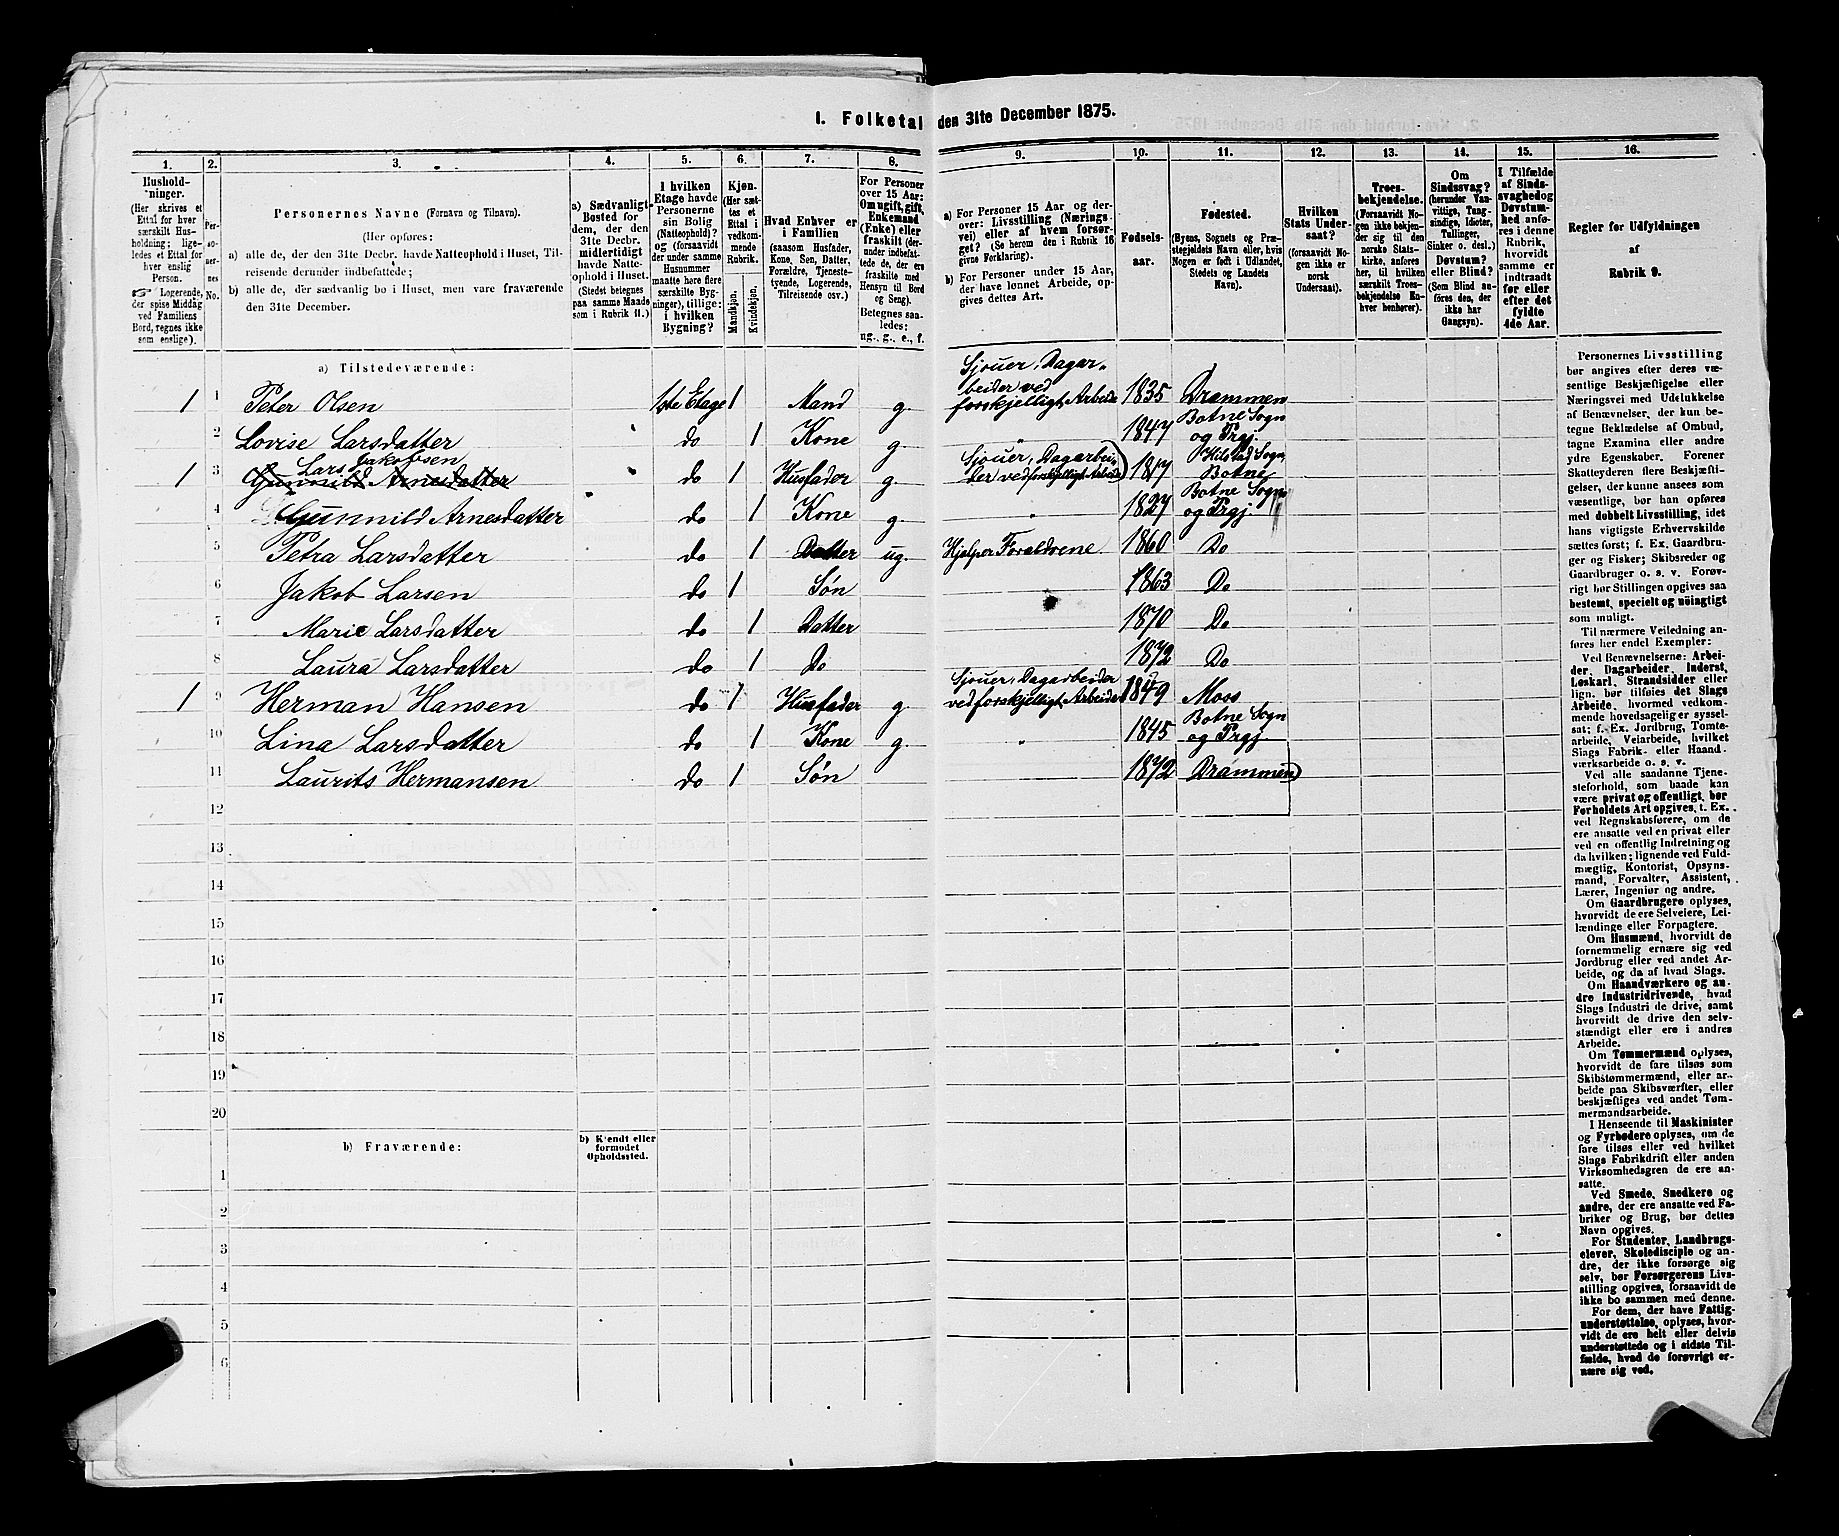 1. Folketal den 31te December 1875.
1. 2. 3. 4. 5. 6. 7. 8. 9. 10. 11. 12. 13. 14. 15. 16.
Hushold-
ninger.
(Her skrives et
Ettal for hver
særskilt Hus-
holdning; lige-
ledes et Ettal for
hver enslig
Person.
☞ Logerende,
der spise Middag
ved Familiens
Bord, regnes ikke
som enslige).
Per-
so-
ner-
nes
No.
Personernes Navne (Fornavn og Tilnavn).
(Her opføres:
a) alle de, der den 31te Decbr. havde Natteophold i Huset, Til-
reisende derunder indbefattede;
b) alle de, der sædvanlig bo i Huset, men vare fraværende
den 31te December.
a) Sædvanligt
Bosted for
dem, der den
31te Decbr.
midlertidigt
havde Natte-
ophold i Huset.
(Stedet betegnes
paa samme Maade
som i Rubrik 11.)
I hvilken
Etage havde
Personerne
sin Bolig
(Natteophold)?
og (forsaavidt
der under samme
Husnummer
maatte høre flere
særskilte Byg-
ninger), tillige:
i hvilken
Bygning?
Kjøn.
(Her sæt-
tes et
Ettal i
vedkom-
mende
Rubrik.
Mandkjøn.
Kvindekjøn.
Hvad Enhver er
i Familien
(saasom Husfader,
Kone, Søn, Datter,
Forældre, Tjeneste-
tyende, Logerende,
Tilreisende osv.)
For Personer
over 15 Aar:
Om ugift, gift,
Enkemand
(Enke) eller
fraskilt (der-
under indbefat-
tede de, der ere
fraskilte med
Hensyn til Bord
og Seng).
Betegnes saa-
ledes:
ug., g., e., f.
a) For Personer 15 Aar og der-
over: Livsstilling (Nærings-
vei) eller af hvem forsør-
get? (Se herom den i Rubrik 16
givne Forklaring).
b) For Personer under 15 Aar,
der have lønnet Arbeide, op-
gives dettes Art.
Fødsels-
aar.
Fødested.
(Byens, Sognets og Præ-
stegjeldets Navn eller, hvis
Nogen er født i Udlandet,
Stedets og Landets
Navn).
Hvilken
Stats Under-
saat?
(forsaavidt No-
gen ikke er
norsk
Undersaat).
Troes-
bekjendelse.
(Forsaavidt No-
gen ikke bekjen-
der sig til den
norske Stats-
kirke, anføres
her, til hvilken
særskilt Troes-
bekjendelse En-
hver henhører).
Om
Sindssvag?
(herunder Van-
vittige, Tung-
sindige, Idioter,
Tullinger,
Sinker o. desl.)
Døvstum?
eller Blind?
(Som Blind an-
føres den, der
ikke har
Gangsyn).
I Tilfælde
af Sinds-
svaghed og
Døvstum-
hed anfø-
res i denne
Rubrik,
hvorvidt
samme er
indtraadt
før eller
efter det
fyldte
4de Aar.
Regler for Udfyldningen
af
Rubrik 9.
a) Tilstedeværende:
1 1 Peter Olsen 1ste Etage 1 Mand g. Sjouer, Dagar-
beider ved
forskjelligt Arbeide 1835 Drammen
2 Lovise Larsdatter do 1 Kone g. " 1847 Botne Sogn
og Prgj.
1 3 Lars Jakobsen
Gunnild Arnesdatter do 1 Husfader g. Sjouer, Dagarbei-
der ved forskjelligt Arbeide 1817 Hilstad Sogn,
Botne
4 Gunnild Arnesdatter do 1 Kone g. " 1827 Botne Sogn
og Prgj.
5 Petra Larsdatter do 1 Datter ug. Hjælper Forældrene 1860 Do
6 Jakob Larsen do 1 Søn 1863 Do
7 Marie Larsdatter do 1 Datter 1870 Do
8 Laura Larsdatter do 1 Do 1872 Do
1 9 Herman Hansen do 1 Husfader g. Sjouer, Dagarbeider
ved forskjelligt Arbeide 1849 Moss
10 Lina Larsdatter do 1 Kone g. " 1845 Botne Sogn
og Prgj.
11 Laurits Hermansen do 1 Søn 1872 Drammen
12
13
14
15
16
17
18
19
20
b) Fraværende:
b) Kjendt eller
formodet
Opholdssted.
1
2
3
4
5
6
Personernes Livsstilling
bør angives efter deres væ-
sentlige Beskjæftigelse eller
Næringsvei med Udelukkelse
af Benævnelser, der kun be-
tegne Beklædelse af Ombud,
tagne Examina eller andre
ydre Egenskaber. Forener
Skatteyderen flere Beskjæfti-
gelser, der kunne ansees som
væsentlige, bør han opføres
med dobbelt Livsstilling, idet
hans vigtigste Erhvervskilde
sættes først; f. Ex. Gaardbru-
ger og Fisker; Skibsreder og
Gaardbruger o. s. v. Forøv-
rigt bør Stillingen opgives saa
bestemt, specielt og nøiagtigt
som muligt.
Til nærmere Veiledning an-
føres her endel Exempler:
Ved Benævnelserne: Arbei-
der, Dagarbeider, Inderst,
Løskarl, Strandsidder eller
lign. bør tilføies det Slags
Arbeide, hvormed vedkom-
mende hovedsagelig er syssel-
sat; f. Ex. Jordbrug, Tomte-
arbeide, Veiarbeide, hvilket
Slags Fabrik- eller Haand-
værksarbeide o. s. v.
Ved alle saadanne Tjene-
steforhold, som baade kan
være privat og offentligt, bør
Forholdets Art opgives, t. Ex.
ved Regnskabsførere, om de
ere ansatte ved en privat eller
ved en offentlig Indretning og
da hvilken; lignende ved Fuld-
mægtig, Kontorist, Opsyns-
mand, Forvalter, Assistent,
Lærer, Ingeniør og andre.
Om Gaardbrugere oplyses,
hvorvidt de ere Selveiere, Lei-
lændinge eller Forpagtere.
Om Husmænd, hvorvidt de
fornemmelig ernære sig ved
Jordbrug eller ved andet Ar-
beide, og da af hvad Slags.
Om Haandværkere og an-
dre Industridrivende, hvad
Slags Industri de drive, samt
hvorvidt de drive den selv-
stændigt eller ere i andres
Arbeide.
Om Tømmermænd oplyses,
hvorvidt de fare tilsøs som
Skibstømmermænd, eller ar-
beide paa Skibsværfter, eller
beskjæftiges ved andet Tøm-
mermandsarbeide.
I Henseende til Maskinister
og Fyrbødere oplyses, om de
fare tilsøs eller ved hvilket
Slags Fabrikdrift eller anden
Virksomhedsgren de ere an-
satte.
Ved Smede, Snedkere og
andre, der ere ansatte ved Fa-
briker og Brug, bør dettes
Navn opgives.
For Studenter, Landbrugs-
elever, Skoledisciple og an-
dre, der ikke forsørge sig
selv, bør Forsørgerens Livs-
stilling opgives, forsaavidt de
ikke bo sammen med denne.
For dem, der have Fattig-
understøttelse, oplyses, hvor-
vidt de ere helt eller delvis
understøttede og i sidste Til-
fælde, hvad de forøvrigt er-
nære sig ved.